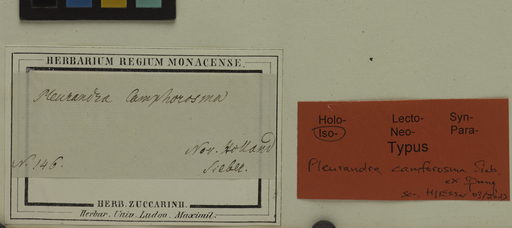 HERBARIUM REGIUM MONACENSE.
Pleurandra Camphorosma
Nov. Holland
N. 146.
Sieber.
HERB. ZUCCARINII.
Herbar. Univ. Ludov. Maximil.
Holo- Lecto- Syn-
Iso- Neo- Para-
Typus
Pleurandra camforosma Sieb.
ex Spreng